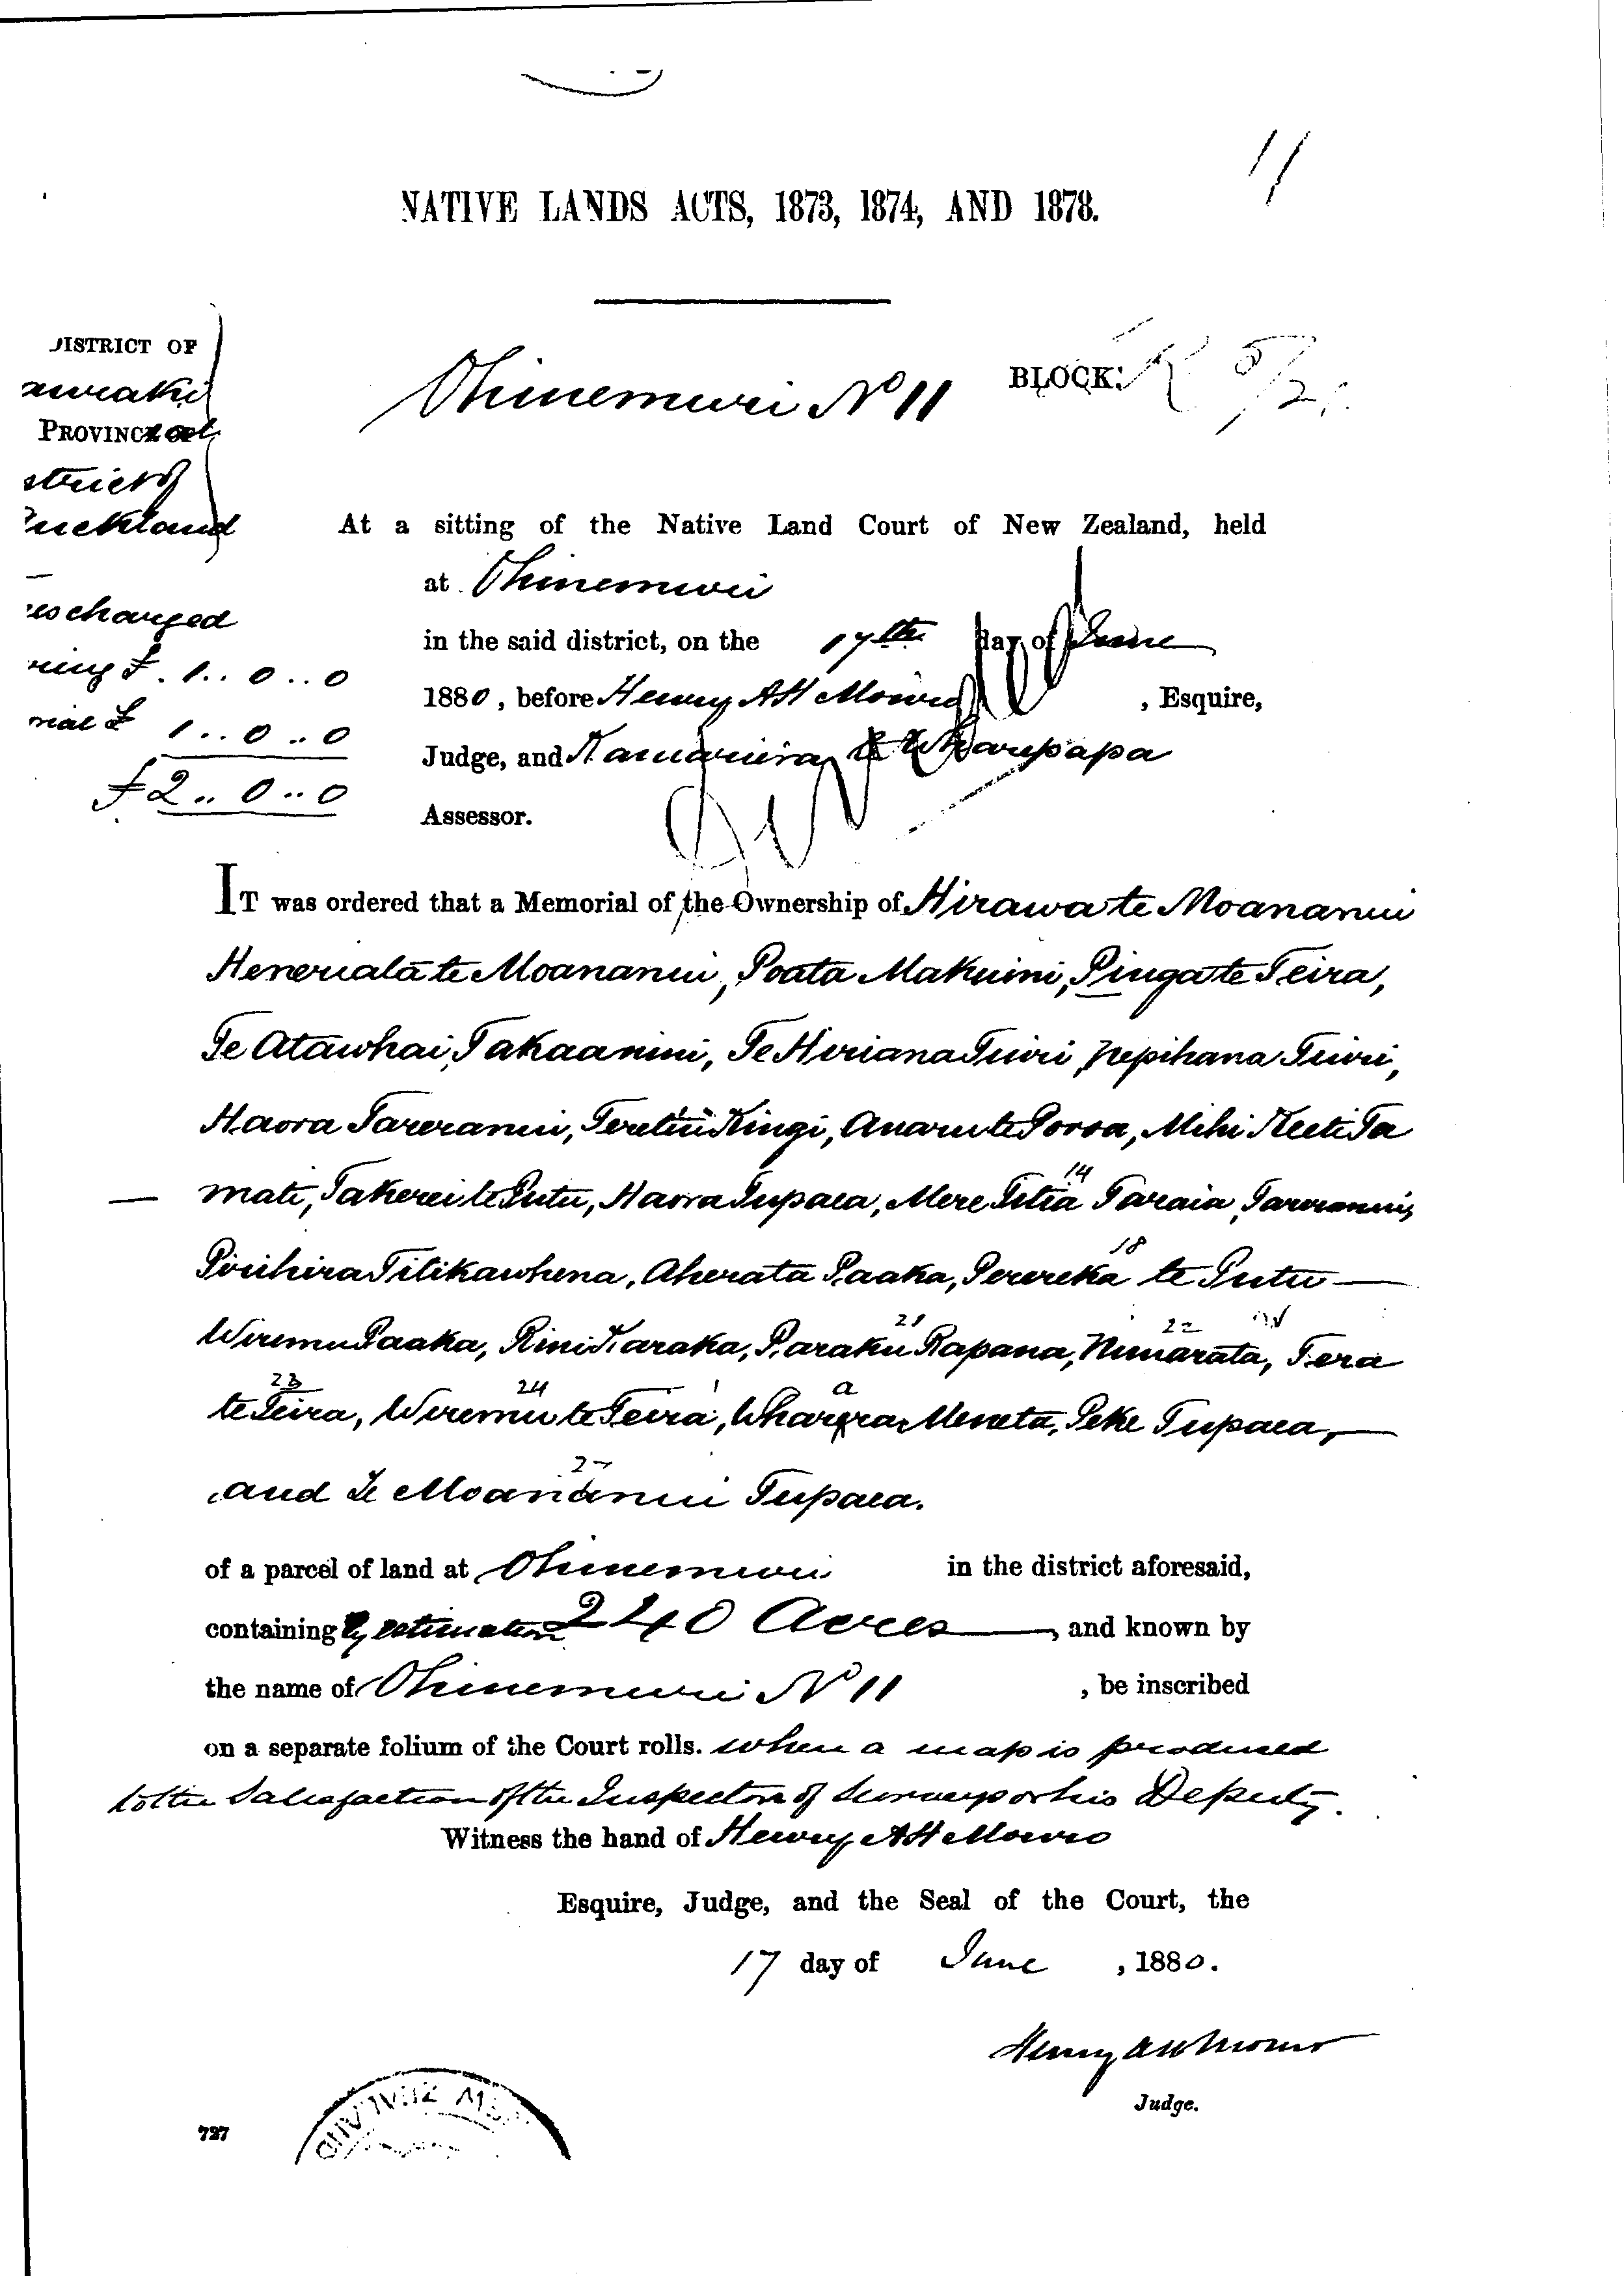 11
NATIVE LANDS ACTS, 1873, 1874, AND 1878.
Ohinemuri No 11 BLOCK.
DISTRICT OF
auraki
PROVINCIAL
strict of
uckland
At a sitting of the Native Land Court of New Zealand, held
at Ohinemuri
in the said district, on the 17th day of June
1880, before Henry A H Monro, Esquire,
Judge, and Kamariera te Wharepapa
Assessor.
es charged
ring £ 1..0..0
rial £ 1..0..0
£2..0..0
IT was ordered that a Memorial of the Ownership of Hirawa te Moananui
Heneriata te Moananui, Poata Makuini, Pinga te Teira,
Te Atawhai Takaanini, Te Hiriana Tuiri, Nepihana Tuiri,
Haora Tareranui, Teretiu Kingi, Anaru te Poroa, Mihi Keeti Ta
14
— mati, Takerei te Putu, Haora Tupaea, Mere Titia Taraia Tareranui,
18
Pirihira Titikawhena, Aherata Paaka, Perereka te Putu —
21 22
Wiremu Paaka, Rini Karaka, Paraku Rapana, Nunarata, Tera
23 24 a
te Teira, Wiremu te Teira, Meneta, Peke Tupaea, —
27
and Te Moananui Tupaea.
of a parcel of land at Ohinemuri in the district aforesaid,
containing by estimation 240 Acres —, and known by
the name of Ohinemuri No 11, be inscribed
on a separate folium of the Court rolls. when a map is produced
to the Satisfaction of the Inspector of Surveys or his Deputy.
Witness the hand of Henry A H Monro
Esquire, Judge, and the Seal of the Court, the
17 day of June, 1880.
Henry A H Monro
Judge.
NEW ZEALAND
727